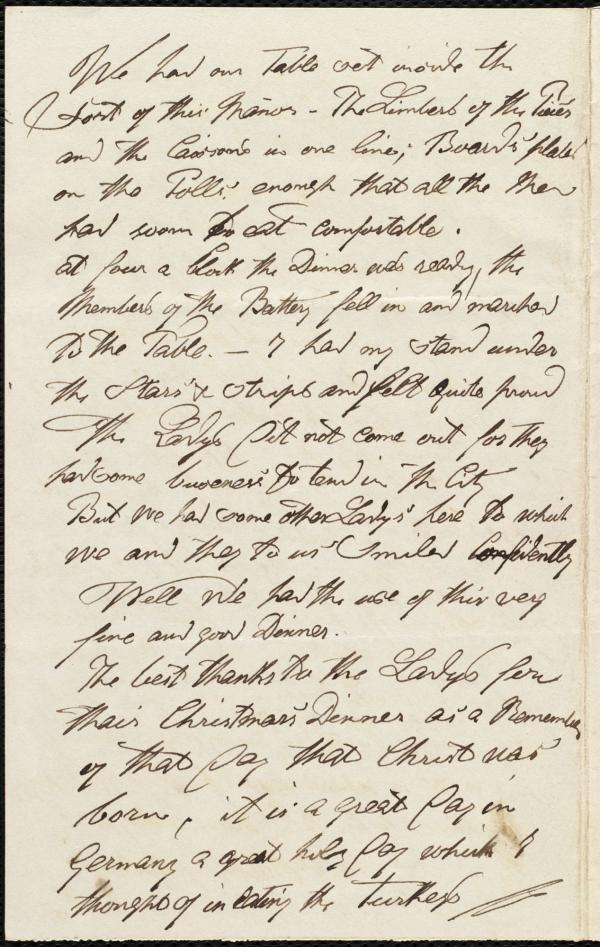 We had our Table set inside the
Fort of this Manor - The Limbers of the Pieces
and the Caisons in one line; Boards plased
on the Polls, enough that all the Men
had room to eat comfortable.
at four a Clock the Dinner was ready, the
Members of the Battery fell in and marched
to the Table. - I had my stand under
the Stars & Strips and felt quite proud
The Ladys dit not come out for they
had some buseness to tend in the City
But we had some other Ladys here to which
we and they to us smiled Confidently
Well we had the use of this very
fine and good Dinner.
The best thanks to the Ladys for
thair Christmas Dinner as a Remember
of that Day that Christ was
born, it is a great Day in
Germany a great holy Day which I
thought of in eating the Turkeys